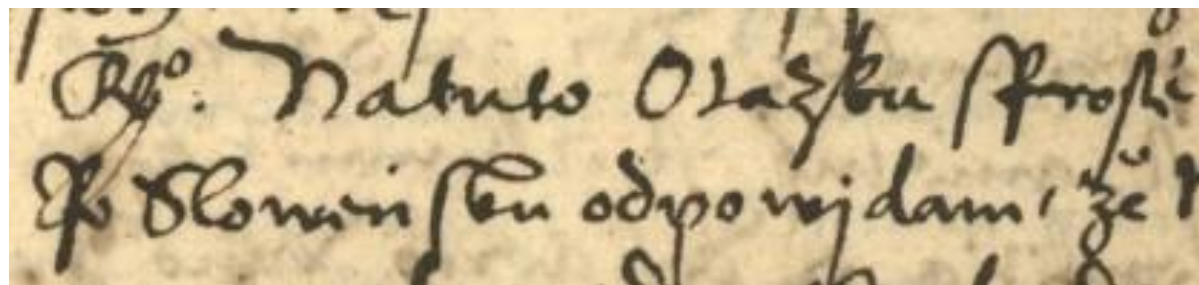 Rᵒ. Natuto Otazku sprosti
Po Slowensku odpowjdam, že